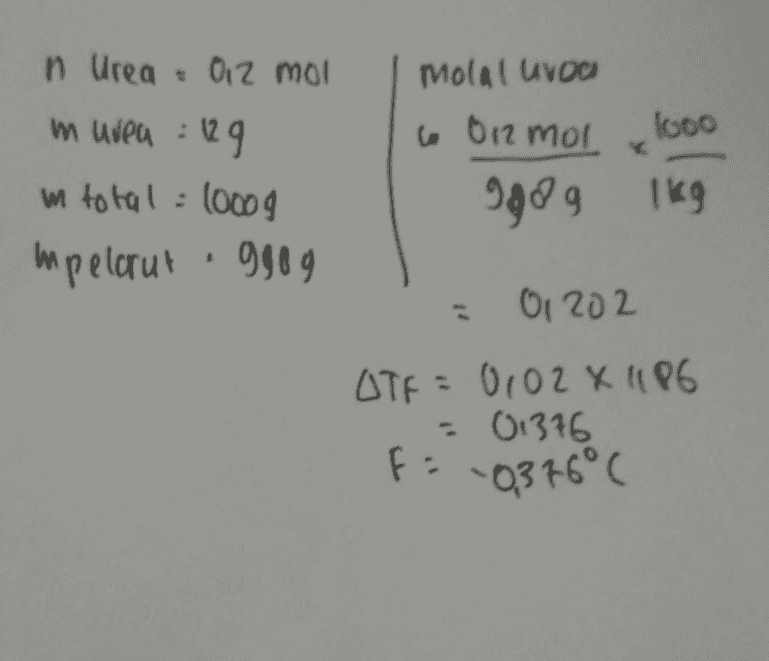 n Urea = 0,2 mol
m urea : 12 g
m total = 1000 g
m pelarut = 988 g
molal urea
↳ 0,2 mol / 988 g × 1000 / 1 kg
= 0,202
ΔTF = 0,02 × 1,86
= 0,376
F = -0,376°C